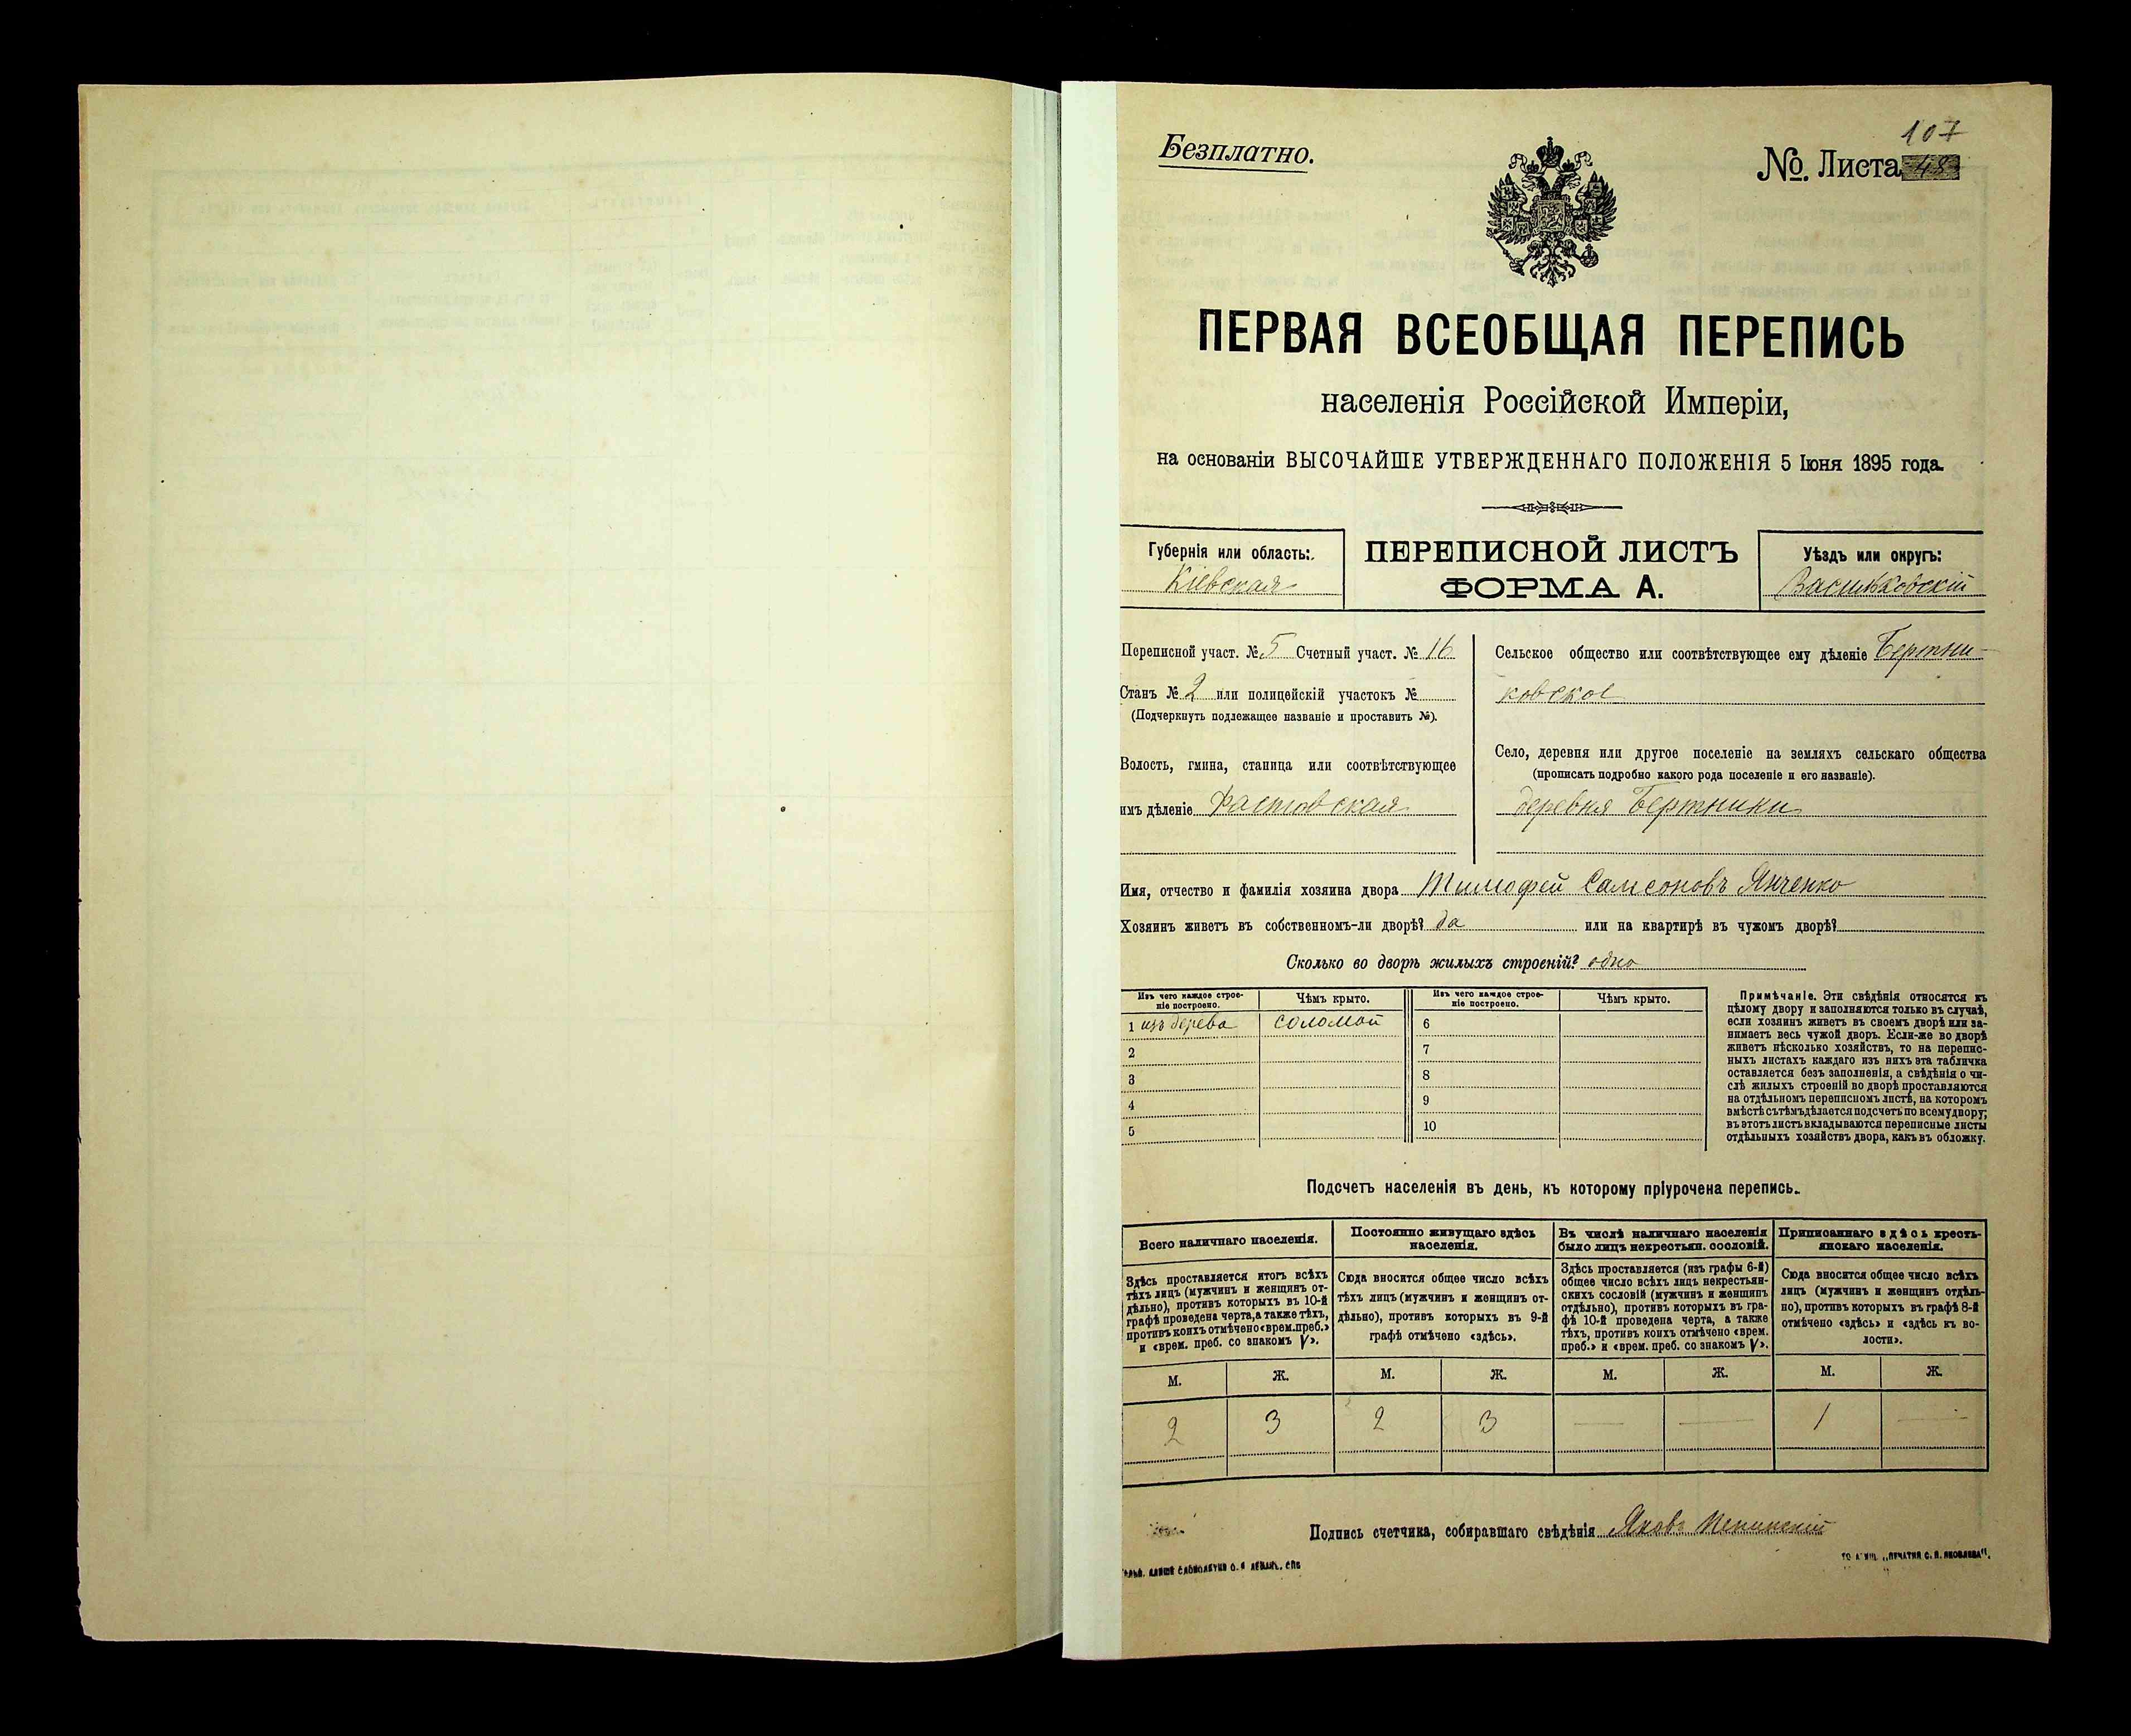 Безплатно.
107
№. Листа 48
ПЕРВАЯ ВСЕОБЩАЯ ПЕРЕПИСЬ
населенія Россійской Имперіи,
на основаніи ВЫСОЧАЙШЕ УТВЕРЖДЕННАГО ПОЛОЖЕНІЯ 5 Іюня 1895 года.
Губернія или область:
Кіевская
ПЕРЕПИСНОЙ ЛИСТЪ
ФОРМА А.
Уѣздъ или округъ:
Васильковскій
Переписной участ. № 5 Счетный участ. № 16
Станъ № 2 или полицейскій участокъ №
(Подчеркнуть подлежащее названіе и проставить №).
Волость, гмина, станица или соотвѣтствующее
имъ дѣленіе Фастовская
Сельское общество или соотвѣтствующее ему дѣленіе Бертни-
ковское
Село, деревня или другое поселеніе на земляхъ сельскаго общества
(прописать подробно какого рода поселеніе и его названіе).
деревня Бертники
Имя, отчество и фамилія хозяина двора Тимофей Самсоновъ Янченко
Хозяинъ живетъ въ собственномъ-ли дворѣ? да или на квартирѣ въ чужомъ дворѣ?
Сколько во дворѣ жилыхъ строеній? одно
Изъ чего каждое строе-
ніе построено.
Чѣмъ крыто.
Изъ чего каждое строе-
ніе построено.
Чѣмъ крыто.
1 изъ дерева соломой 6
2 7
3 8
4 9
5 10
Примѣчаніе. Эти свѣдѣнія относятся къ
цѣлому двору и заполняются только въ случаѣ,
если хозяинъ живетъ въ своемъ дворѣ или за-
нимаетъ весь чужой дворъ. Если-же во дворѣ
живетъ нѣсколько хозяйствъ, то на перепис-
ныхъ листахъ каждаго изъ нихъ эта табличка
оставляется безъ заполненія, а свѣдѣнія о чи-
слѣ жилыхъ строеній во дворѣ проставляются
на отдѣльномъ переписномъ листѣ, на которомъ
вмѣстѣ съ тѣмъ дѣлается подсчетъ по всему двору;
въ этотъ листъ вкладываются переписные листы
отдѣльныхъ хозяйствъ двора, какъ въ обложку.
Подсчетъ населенія въ день, къ которому пріурочена перепись.
Всего наличнаго населенія.
Здѣсь проставляется итогъ всѣхъ
тѣхъ лицъ (мужчинъ и женщинъ от-
дѣльно), противъ которыхъ въ 10-й
графѣ проведена черта, а также тѣхъ,
противъ коихъ отмѣчено «врем. преб.»
и «врем. преб. со знакомъ V».
Постоянно живущаго здѣсь
населенія.
Сюда вносится общее число всѣхъ
тѣхъ лицъ (мужчинъ и женщинъ от-
дѣльно), противъ которыхъ въ 9-й
графѣ отмѣчено «здѣсь».
Въ числѣ наличнаго населенія
было лицъ некрестьян. сословій.
Здѣсь проставляется (изъ графы 6-й)
общее число всѣхъ лицъ некрестьян-
скихъ сословій (мужчинъ и женщинъ
отдѣльно), противъ которыхъ въ гра-
фѣ 10-й проведена черта, а также
тѣхъ, противъ коихъ отмѣчено «врем.
преб.» и «врем. преб. со знакомъ V».
Приписаннаго здѣсь кресть-
янскаго населенія.
Сюда вносится общее число всѣхъ
лицъ (мужчинъ и женщинъ отдѣль-
но), противъ которыхъ въ графѣ 8-й
отмѣчено «здѣсь» и «здѣсь къ во-
лости».
М. Ж. М. Ж. М. Ж. М. Ж.
2 3 2 3 — — 1 —
Подпись счетчика, собиравшаго свѣдѣнія Яковъ